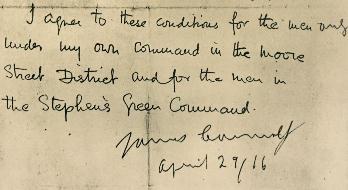 I agree to these conditions for the men only
under my own Command in the Moore
Street District and for the men in
the Stephen's Green Command.
James Connolly
April 29/16